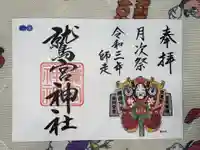 奉拝
月次祭
令和三年
師走
鷲宮神社